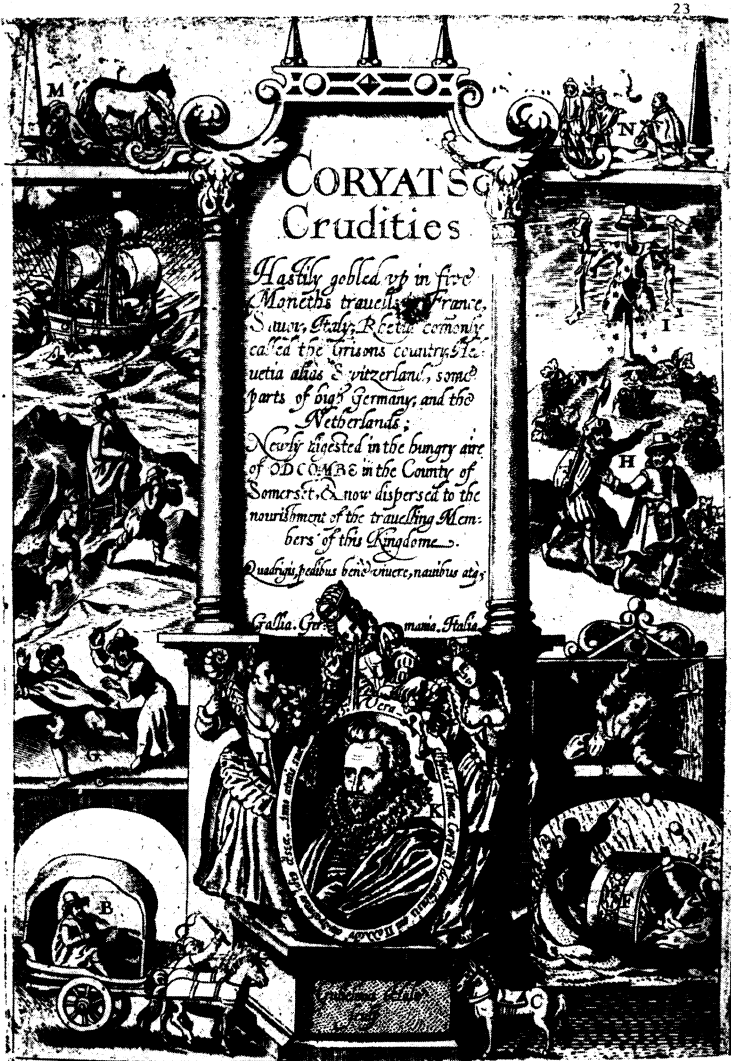 23
M
N
CORYATS
Crudities
Hastily gobled vp in five
Moneths travells France,
Savoy, Italy, Rhetia comonly
called the Grisons country, Hel-
vetia alias Switzerland, some
parts of high Germany, and the
Netherlands;
Newly digested in the hungry aire
of ODCOMBE in the County of
Somerset, & now dispersed to the
nourishment of the travelling Mem-
bers of this Kingdome.
Quadrigis, pedibus bene vivere, navibus atqз
Gallia. Germania. Italia
A
I
H
G
L
K
Vera
F
B
C